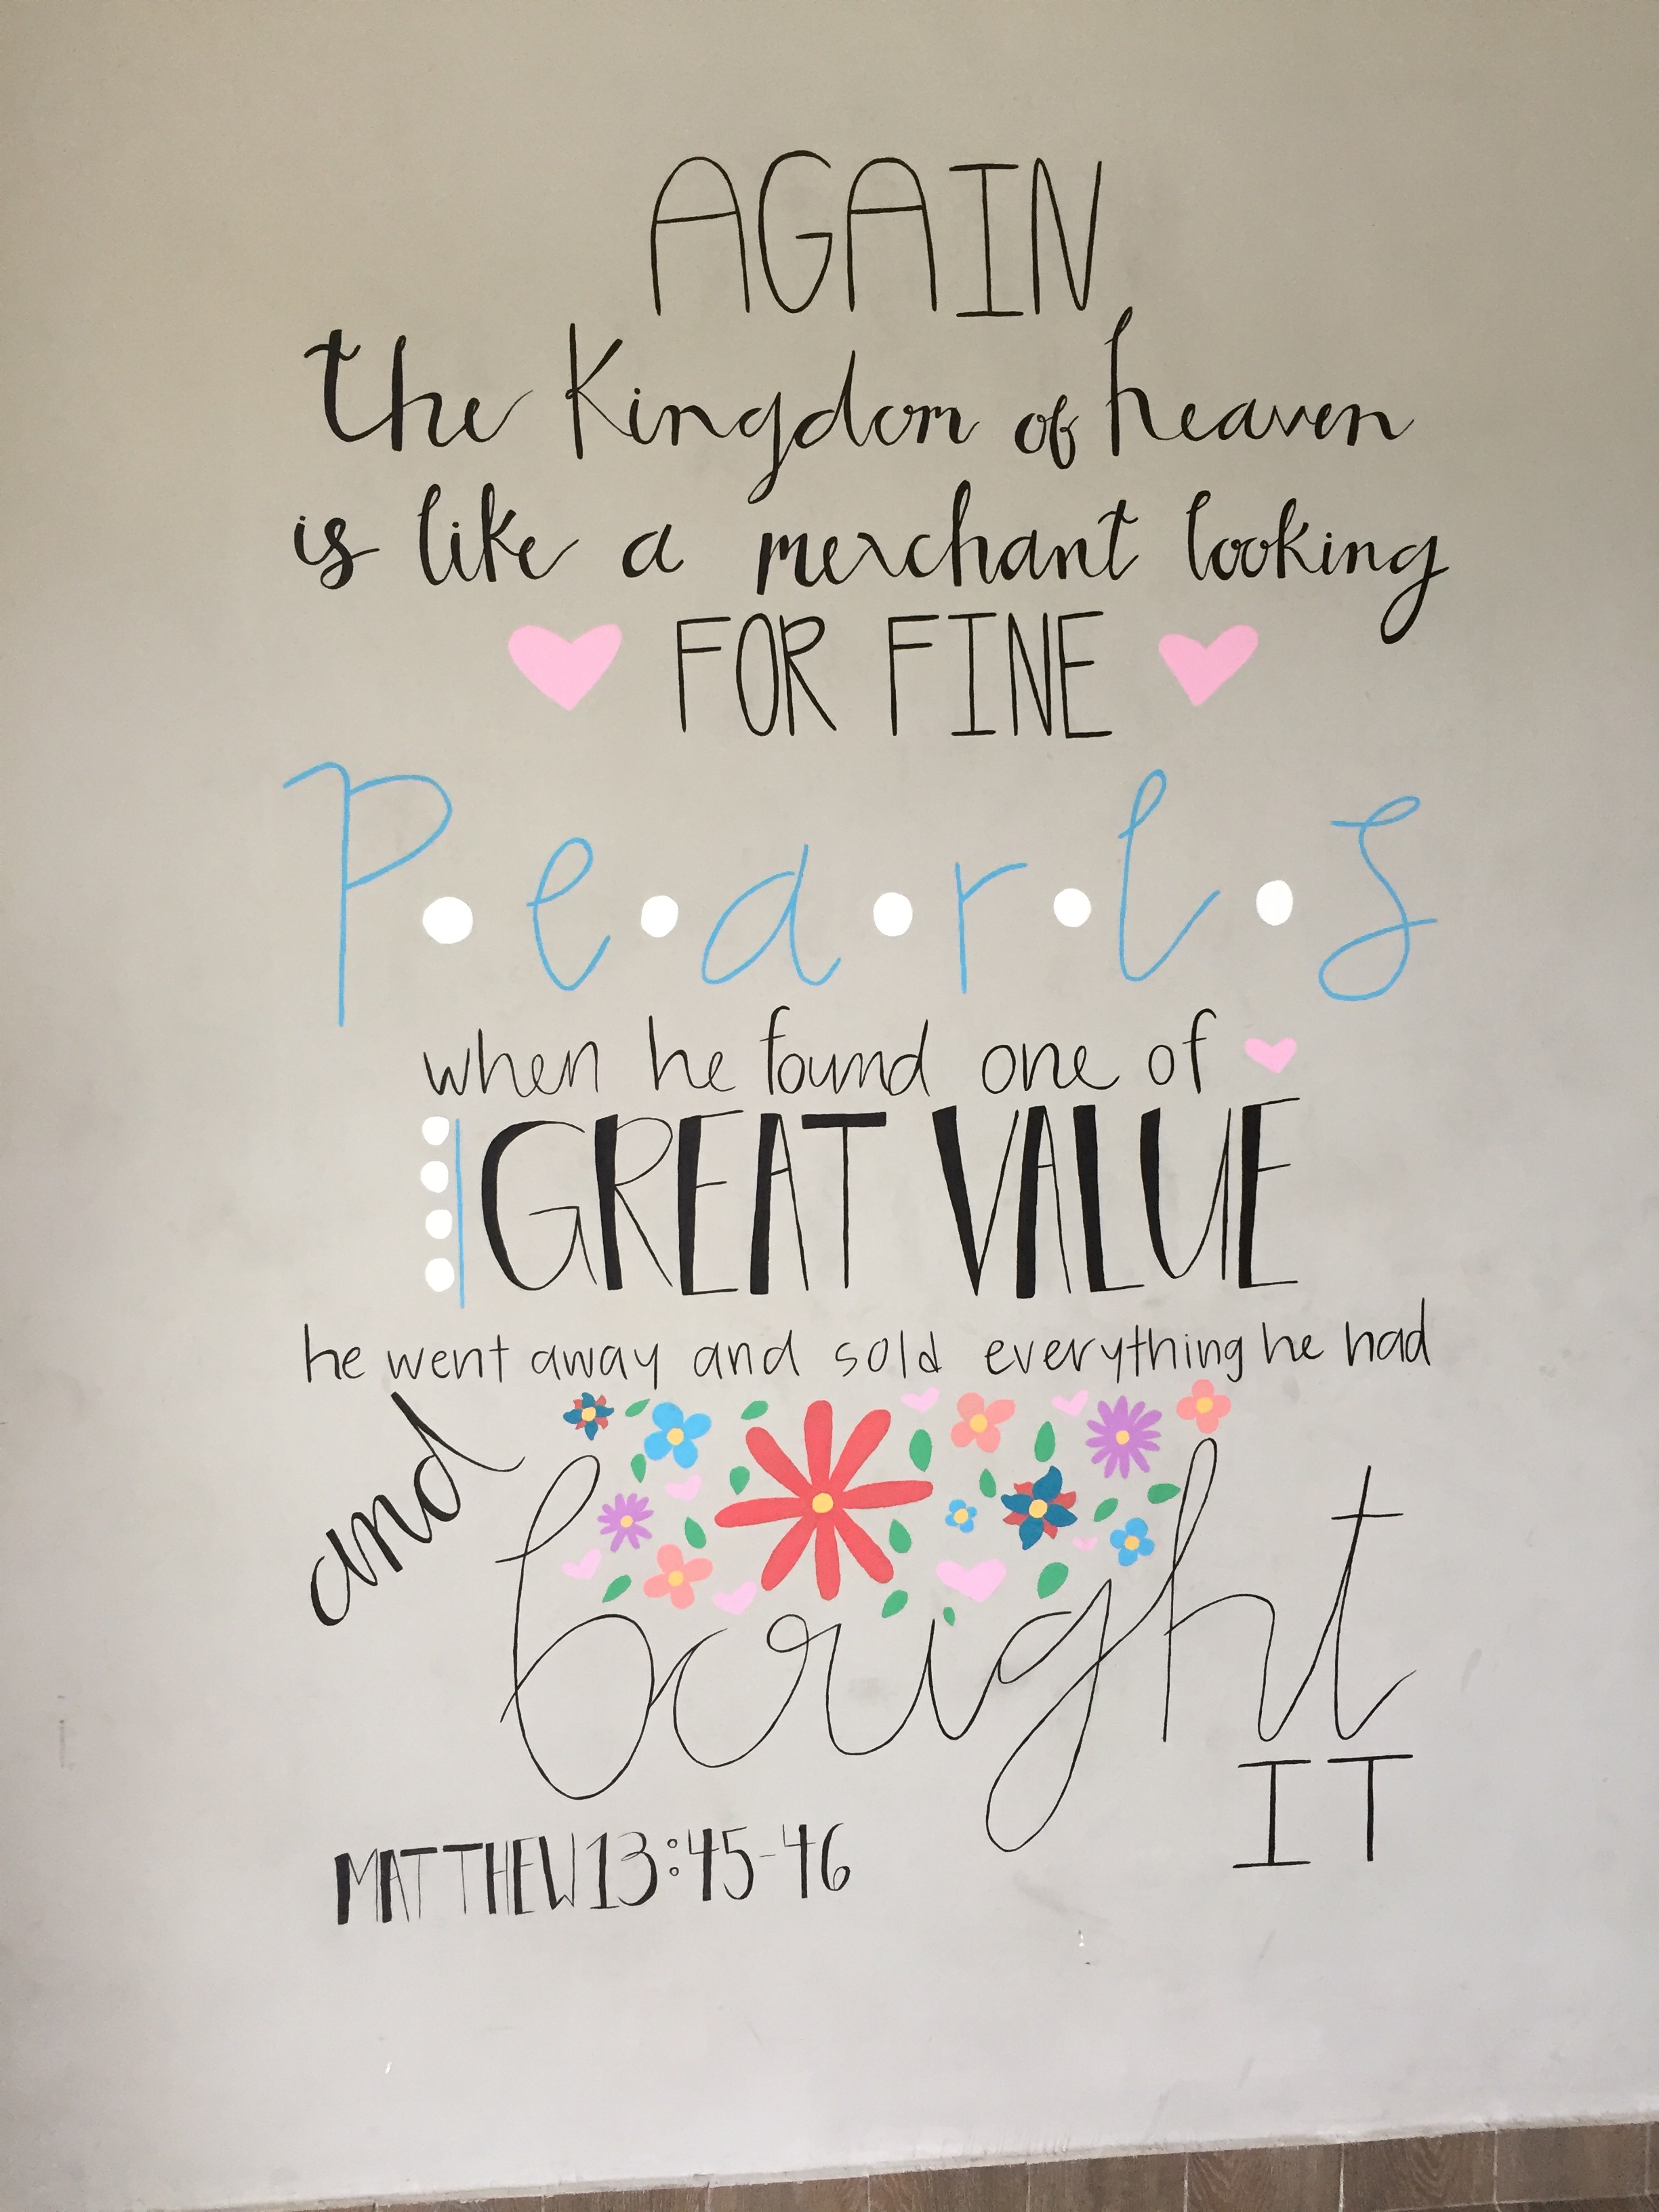 AGAIN,
the Kingdom of heaven
is like a merchant looking
FOR FINE
P•e•a•r•l•s
when he found one of
GREAT VALUE
he went away and sold everything he had
and bought
IT
MATTHEW 13:45-46